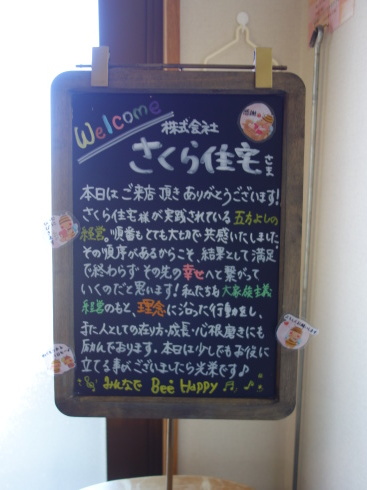 Welcome
株式会社
さくら住宅さま
本日はご来店頂きありがとうございます!
さくら住宅様が実践されている五方よしの
経営。順番もとても大切で共感いたしました。
その順序があるからこそ、結果として満足
で終わらずその先の幸せへと繋がって
いくのだと思います!私たちも大家族主義
経営のもと、理念に沿った行動をし、
また人としての在り方・成長・心根磨きにも
励んでおります。本日は少しでもお役に
立てる事がございましたら光栄です♪
みんなで Bee Happy ♪♫♪